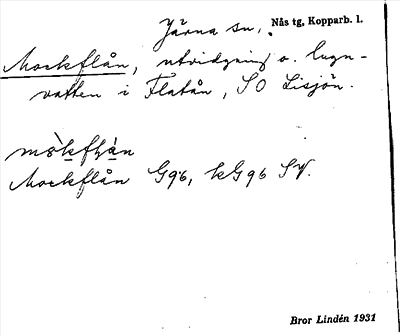 Järna sn. Nås tg, Kopparb. l.
Mockflån, utvidgning o. lugn-
vatten i Flatån, SO Lisjön.
Mockflån G96, kG96 SV.
Bror Lindén 1931